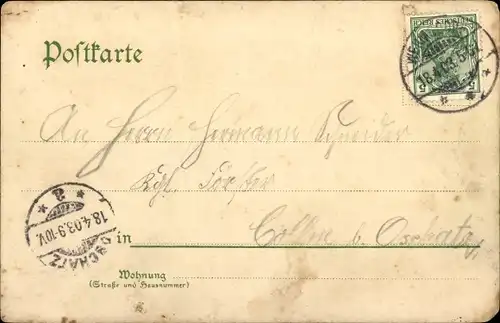 Postkarte
18.4.03.
An Herrn Hermann Schneider
Kgl. Förster
in Collm b. Oschatz
OSCHATZ
18.4.03.9-10V.
Wohnung
(Straße und Hausnummer)